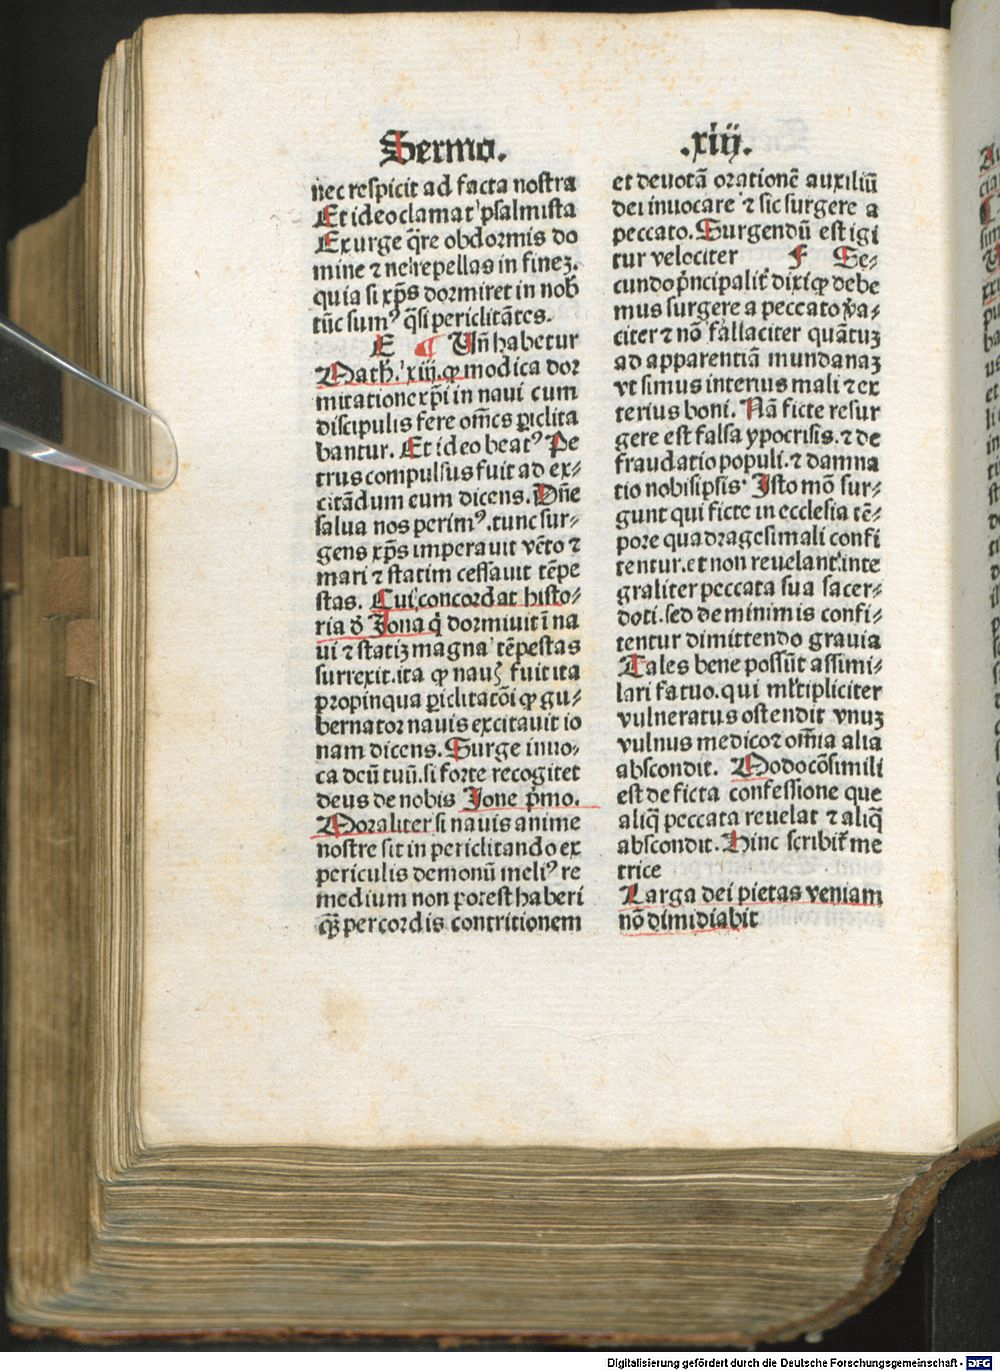 Sermo.
.xiij.
nec respicit ad facta nostra
Et ideo clamat psalmista
Exurge q̄re obdormis do
mine ⁊ ne repellas in finez.
quia si xp̄s dormiret in nob̄
tūc sumꝰ q̄si periclitātes.
E ¶ Vñ habetur
Math. xiij. ꝙ modica dor
mitatione xp̄i in naui cum
discipulis fere om̄es ꝑiclita
bantur. Et ideo beatꝰ Pe
trus compulsus fuit ad ex⸗
citādum eum dicens. Dn̄e
salua nos perimꝰ. tunc sur⸗
gens xp̄s imperauit vēto ⁊
mari ⁊ statim cessauit tēpe
stas. Cui concordat histo⸗
ria d̄ Jona q̇ dormiuit ī na
ui ⁊ statiz magna tēpestas
surrexit. ita ꝙ nauꝭ fuit ita
propinqua ꝑiclitatōi ꝙ gu⸗
bernator nauis excitauit io
nam dicens. Surge inuo⸗
ca deū tuū. si forte recogitet
deus de nobis Jone p̄mo.
Moraliter si nauis anime
nostre sit in periclitando ex
periculis demonū meliꝰ re
medium non potest haberi
qꝫ̄ per cordis contritionem
et deuotā orationē auxiliū
dei inuocare ⁊ sic surgere a
peccato. Surgendū est igi
tur velociter F Se⸗
cundo p̄ncipalit̄ dixi ꝙ debe
mus surgere a peccato v̾a⸗
citer ⁊ nō fallaciter quātuz
ad apparentiā mundanaz
vt simus interius mali ⁊ ex
terius boni. Nā ficte resur
gere est falsa ypocrisis. ⁊ de
fraudatio populi. ⁊ damna
tio nobisipsis. Isto mō sur⸗
gunt qui ficte in ecclesia tē⸗
pore quadragesimali confi
tentur. et non reuelant inte
graliter peccata sua sacer⸗
doti. sed de minimis confi⸗
tentur dimittendo grauia
Tales bene possūt assimi⸗
lari fatuo. qui ml̄tipliciter
vulneratus ostendit vnuz
vulnus medico ⁊ om̄ia alia
abscondit. Modo cōsimili
est de ficta confessione que
aliq̄ peccata reuelat ⁊ aliq̄
abscondit. Hinc scribit̄ me
trice
Larga dei pietas veniam
nō dimidiabit
Digitalisierung gefördert durch die Deutsche Forschungsgemeinschaft - DFG